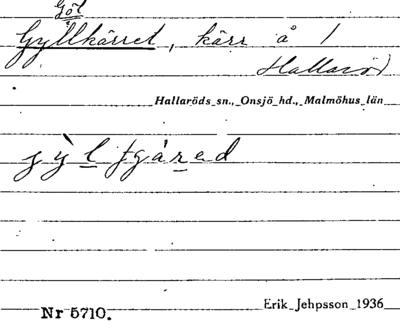 Göl
Gyllkärret, kärr å 1
Hallaröd
Hallaröds sn., Onsjö hd., Malmöhus län
Erik Jehpsson 1936
Nr 5710.